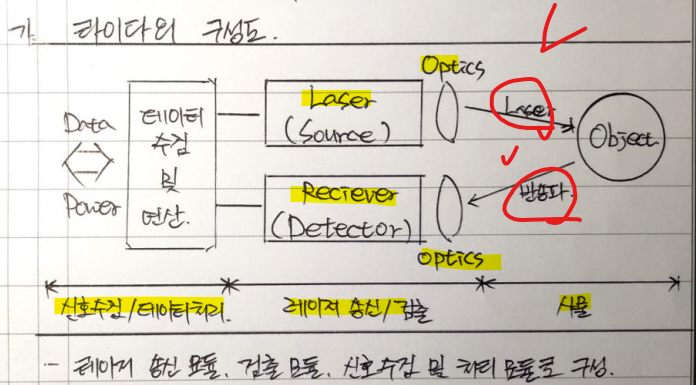 가. 라이다의 구성도.
Optics
Data
Power
데이터
수집
및
연산.
Laser
(Source)
Laser
Object.
Reciever
(Detector)
반송파.
Optics
신호수집/데이터처리.
레이저 송신/검출
사물
- 레이저 송신 모듈, 검출 모듈, 신호수집 및 처리 모듈로 구성.